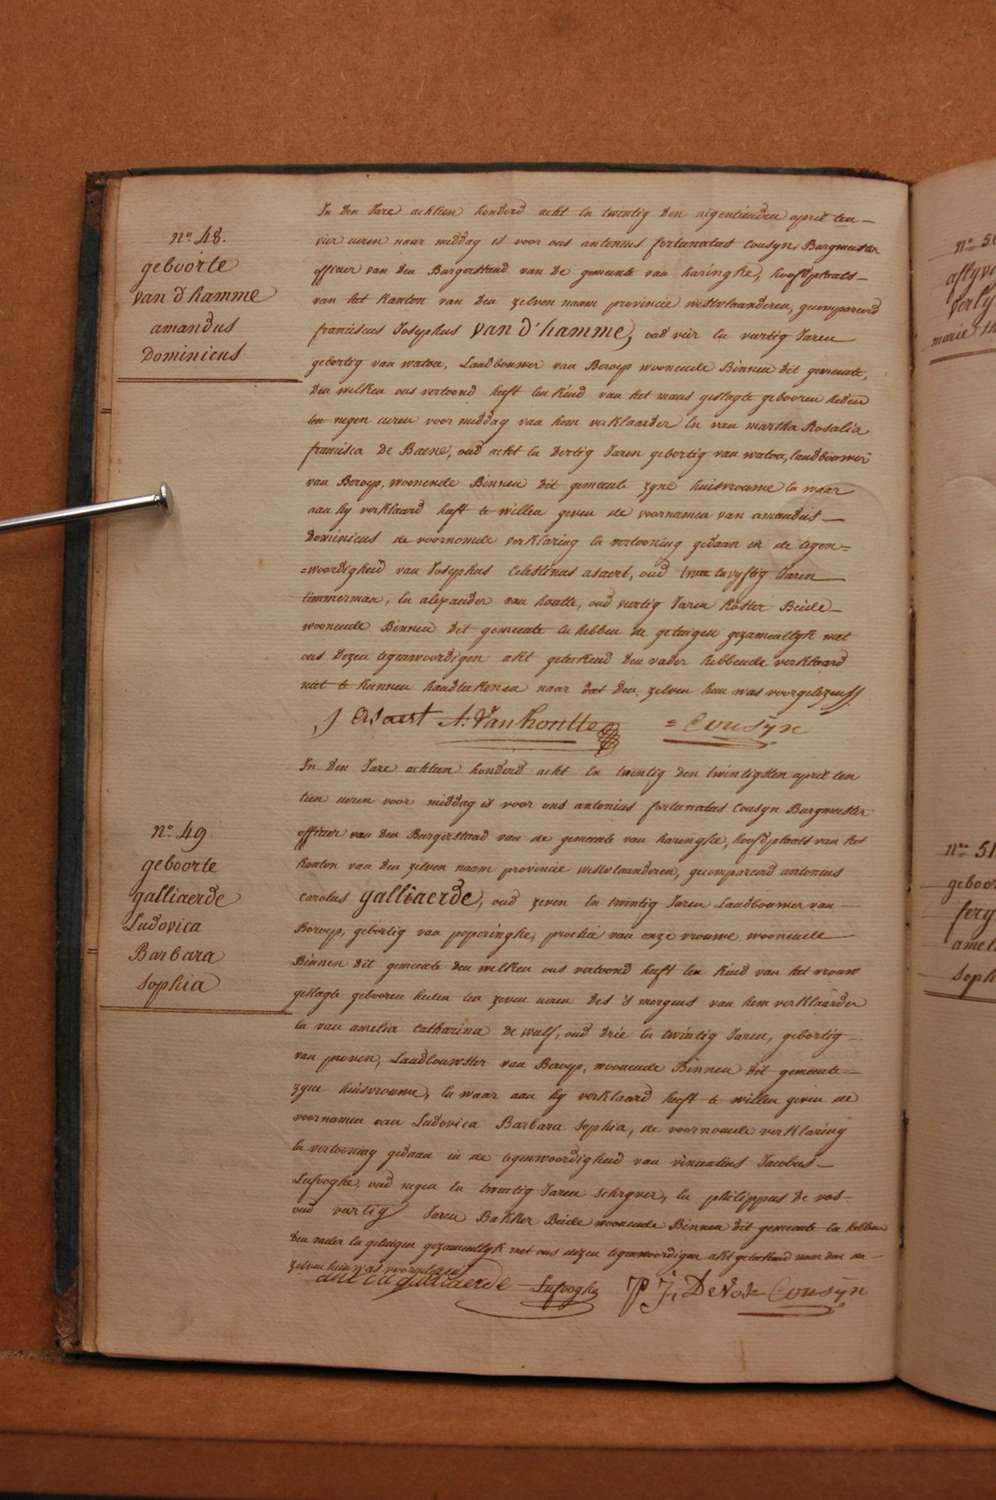 n.o 48.
geboorte
van d'hamme
amandus
Dominicus
In den Jare achtien honderd acht en twintig den negentienden april ten
vier uren naer middag is voor ons antonius fortunatus Cousyn, Burgmeester
officier van den Burgerstand van de gemeente van haringhe, hoofdplaats
van het kanton van den zelven naem provincie westvlaanderen, gecompareerd
franciscus Josephus van d'hamme, oud vier en veertig Jaren
gebortig van watou, Landbouwer van Beroep woonende Binnen dit gemeente,
den welken ons vertoond heeft een kind van het mans geslagte gebooren heden
ten negen uren voor middag van hem verklaarder en van martha Rosalia
francisca De Baene, oud acht en dertig Jaren gebortig van watou, landbouwer
van Beroep, woonende Binnen dit gemeente zyne huisvrouwe en waar
aan hy verklaard heeft te willen geven de voornamen van amandus
Dominicus de voornomde verklaring en vertooning gedaan in de tegen=
=woordigheid van Josephus Celestinus asaert, oud en vyftig Jaren
timmerman, en alexander van houtte, oud veertig Jaren koster Beide
woonende Binnen dit gemeente en hebben de getuigen gezamentlyk met
ons dezen tegenwoordigen akt geteekend den vader hebbende verklaard
niet te kunnen handteekenen naar dat den zelven hun was voorgelezen
J Asaert A: Van houtte = Cousÿn
n.o 49
geboorte
galliaerde
Ludovica
Barbara
Sophia
In den Jare achtien honderd acht en twintig den twintigsten april ten
tien uren voor middag is voor ons antonius fortunatus Cousyn Burgmeester
officier van den Burgerstand van de gemeente van haringhe, hoofdplaats van het
kanton van den zelven naam provincie westvlaanderen, gecompareerd antonius
carolus galliaerde, oud zeven en twintig Jaren Landbouwer van
Beroep, gebortig van poperinghe, prochie van onze vrouwe woonende
Binnen dit gemeente den welken ons vertoond heeft een kind van het vrouw
geslagte gebooren heden ten zeven uren des 's morgens van hem verklaarder
en van amelia Catharina de wulf, oud drie en twintig Jaren, gebortig
van proven, Landbouwster van Beroep, woonende Binnen dit gemeente
zyne huisvrouwe, en waar aan hy verklaard heeft te willen geven de
voornamen van Ludovica Barbara Sophia, de voornomde verklaring
en vertooning gedaan in de tegenwoordigheid van vincentius Jacobus
Lufooghe, oud negen en twintig Jaren schryver, en philippus de vos
oud veertig Jaren Bakker Beide woonende Binnen dit gemeente en hebben
den vader en getuigen gezamentlyk met ons dezen tegenwoordigen akt geteekend naar dat den
zelven hun was voorgelezen
galliaerde Lufooghe P J, DeVos = Cousÿn
n.o 50
n.o 51
geboor
fery
amel
Soph